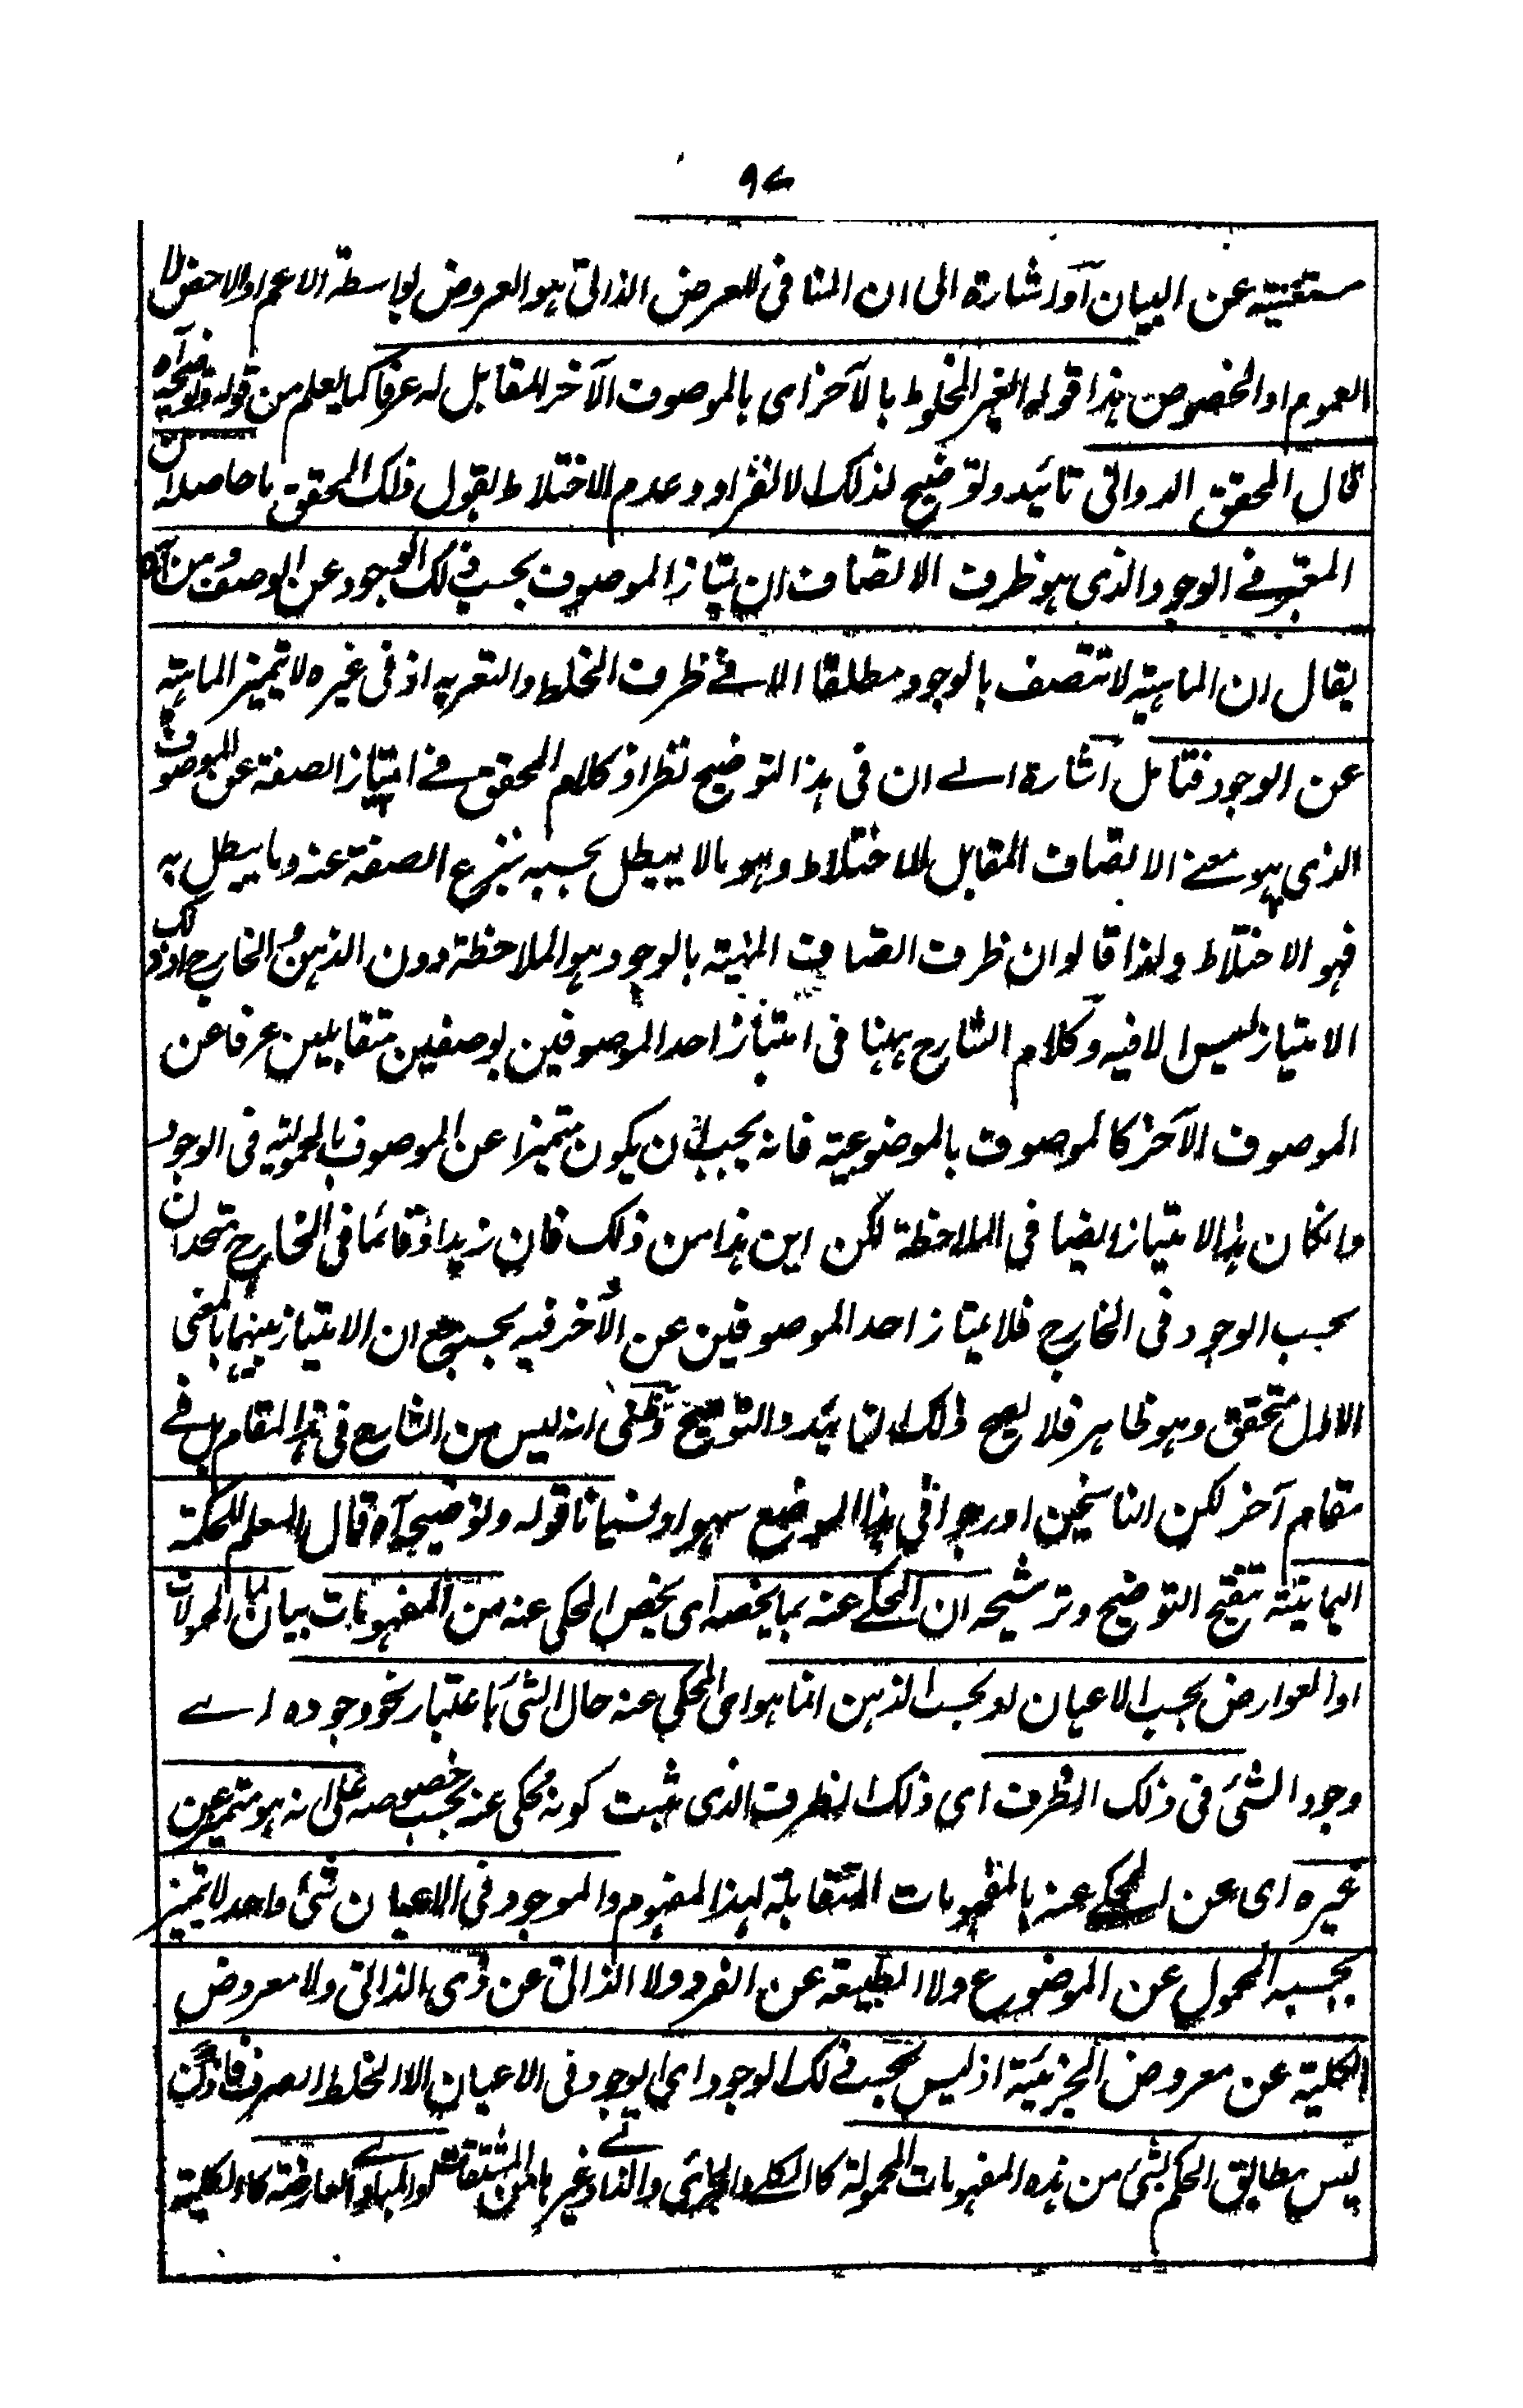 ٩٧
مستغنية عن البيان آو اشارة الى ان المنافى للعرض الذاتى هو العروض بواسطة الاعم او الاخص لا
العموم او الخصوص هذا قوله الغير المخلوط بالآخر اى بالموصوف الآخر المقابل له عرفا كما يعلم من قوله وتوضيحه آه
قال المحقق الدوانى تائيد وتوضيح لذلك الانفراد وعدم الاختلاط بقول ذلك المحقق ما حاصله ان
المعتبر فى الوجود الذى هو ظرف الاتصاف ان يمتاز الموصوف بحسب ذلك الوجود عن الوصف ومن آه
يقال ان الماهية لا تتصف بالوجود مطلقا الا فى ظرف الخلط والتعرية اذ فى غيره لا تتميز الماهية
عن الوجود فتامل آشارة الى ان فى هذا التوضيح نظرا ذ كلام المحقق فى امتياز الصفة عن الموصوف
الذى هو معنى الاتصاف المقابل للاختلاط وهو ما لا يبطل بحسبه نزع الصفة عنه وما يبطل به
فهو الاختلاط ولذا قالوا ان ظرف اتصاف المهية بالوجود هو الملاحظة دون الذهن والخارج اذ ذلك
الامتياز ليس الا فيه وكلام الشارح ههنا فى امتياز احد الموصوفين بوصفين متقابلين عرفا عن
الموصوف الآخر كالموصوف بالموضوعية فانه يجب ان يكون متميزا عن الموصوف بالمحمولية فى الوجود
وانكان هذا الامتياز ايضا فى الملاحظة لكن اين هذا من ذلك فان زيدا وقائما فى الخارج متحدان
بحسب الوجود فى الخارج فلا يمتاز احد الموصوفين عن الآخر فيه بحسبه مع ان الامتياز بينهما بالمعنى
الاول متحقق وهو ظاهر فلا يصح ذلك التائيد والتوضيح وظنى انه ليس من الشارح فى هذا المقام بل فى
مقام آخر لكن الناسخين اوردوا فى هذا الموضع سهوا ونسيانا قوله وتوضيحه آه قال المعلم للحكمة
اليمانية تنقيح التوضيح وترشيحه ان المحكى عنه بما يخصه اى يخص المحكى عنه من المفهومات بيان لما المحمولات
او العوارض بحسب الاعيان او بحسب الذهن انما هو اى المحكى عنه حال الشئ باعتبار نحو وجوده اى
وجود الشئ فى ذلك الظرف اى ذلك الظرف الذى ثبت كونه محكى عنه بحسب خصوصه على انه هو متميز عن
غيره اى عن المحكى عنه بالمفهومات المتقابلة لهذا المفهوم والموجود فى الاعيان شئ واحد لا يتميز
بحسبه المحمول عن الموضوع ولا الطبيعة عن الفرد ولا الذاتى عن ذى الذاتى ولا معروض
الكلية عن معروض الجزئية اذ ليس بحسب ذلك الوجود اى الوجود فى الاعيان الا الخلط الصرف فاذن
ليس مطابق الحكم بشئ من هذه المفهومات المحمولة كالكلى والجزئى والذاتى وغيرها من المشتقات او المبادى العارضة كالكلية